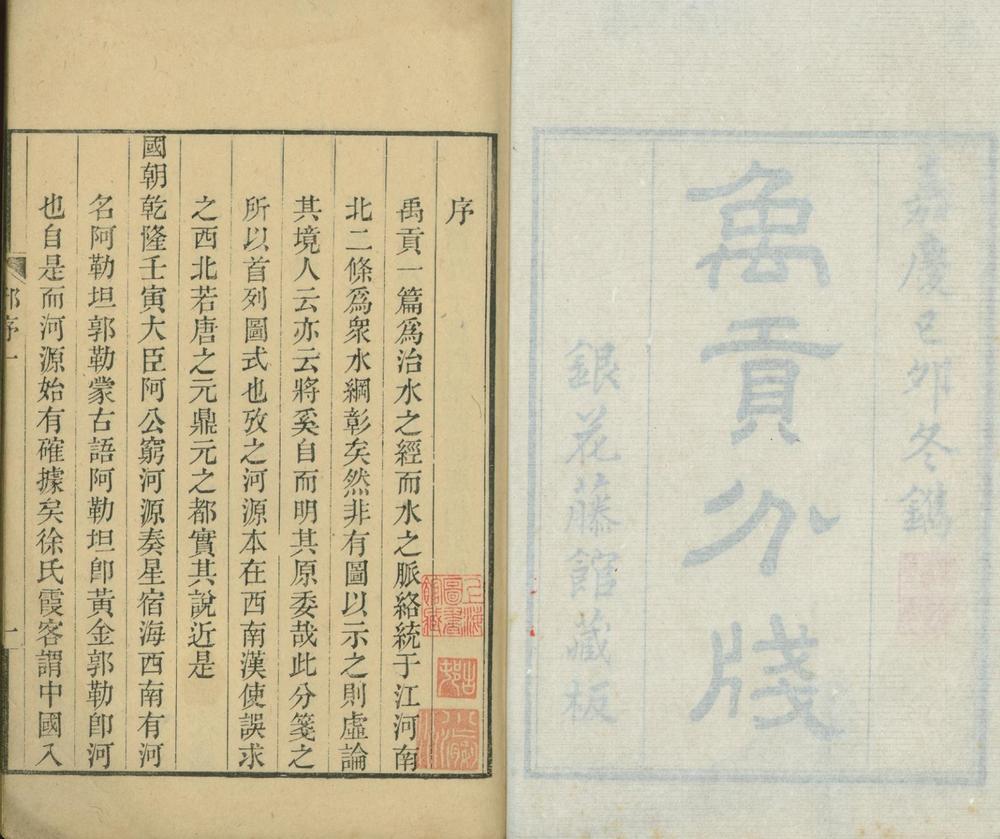 嘉慶己卯冬鐫
禹貢分牋
銀花藤館藏板
序
禹貢一篇爲治水之經而水之脈絡統于江河南
北二條爲衆水綱彰矣然非有圖以示之則虛論
其境人云亦云將奚自而明其原委哉此分箋之
所以首列圖式也攷之河源本在西南漢使誤求
之西北若唐之元鼎元之都實其說近是
國朝乾隆壬寅大臣阿公窮河源奏星宿海西南有河
名阿勒坦郭勒蒙古語阿勒坦卽黃金郭勒卽河
也自是而河源始有確據矣徐氏霞客謂中國入
上海
圖書
館藏
序一
一